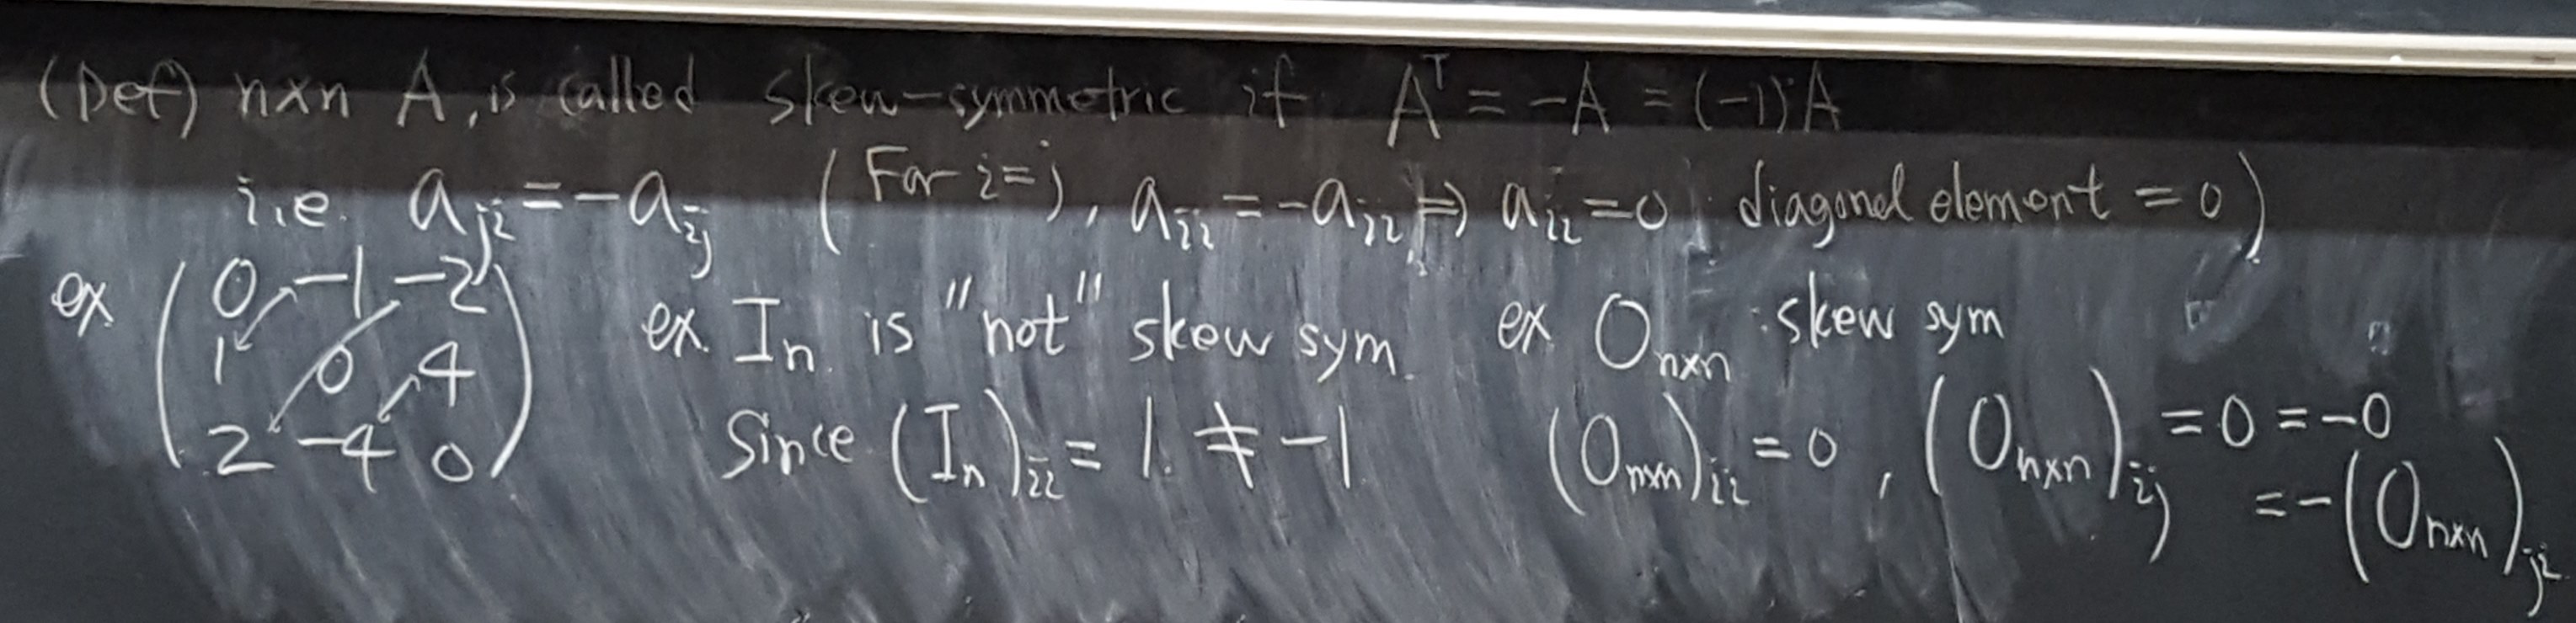 (Def) n×n A, is called skew-symmetric if A^T = -A = (-1)A
i.e. a_ji = -a_ij (For i=j, a_ii = -a_ii ⇒ a_ii = 0 : diagonal element = 0)
ex ( 0 -1 -2
1 0 4
2 -4 0 )
ex. I_n is "not" skew sym.
Since (I_n)_ii = 1 ≠ -1
ex O_n×n : skew sym
(O_n×n)_ii = 0, (O_n×n)_ij = 0 = -0
= -(O_n×n)_ji